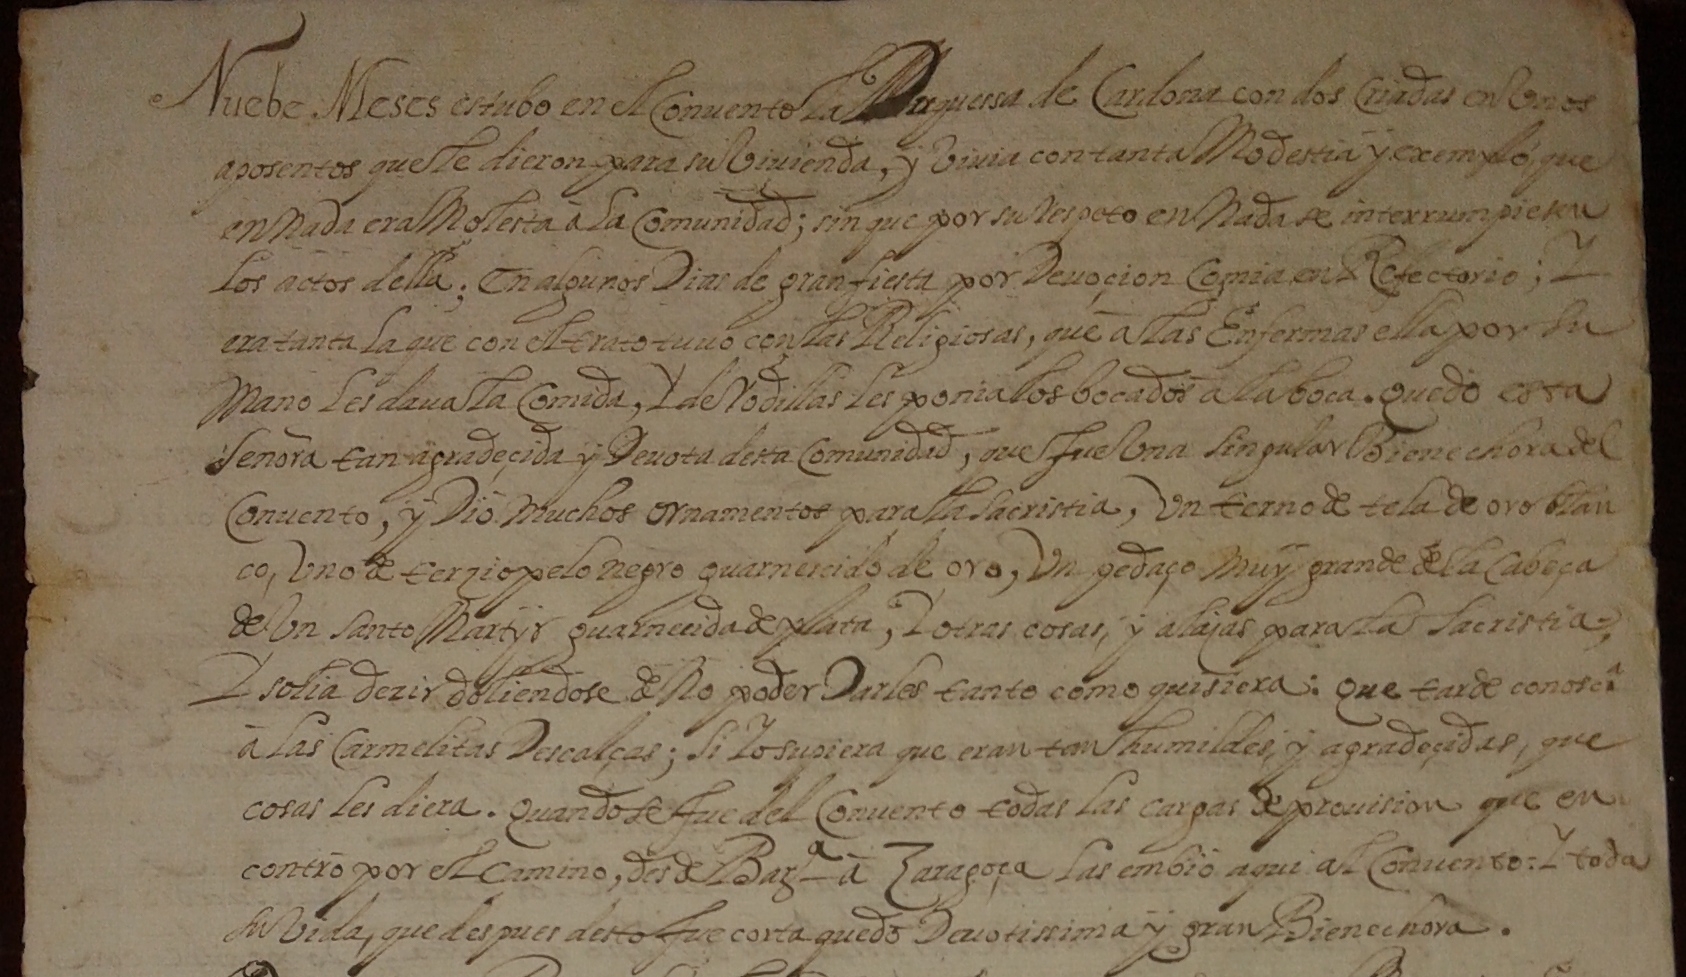 Nuebe Meses estubo en el Conuento la Duquessa de Cardona con dos Criadas en Vnos
aposentos que le dieron para su Viuienda, y Viuia con tanta Modestia y exemplo, que
en Nada era Molesta à la Comunidad; sin que por su respeto en Nada se interrumpiesen
los actos della; En algunos Dias de gran fiesta por Deuoçion Comia en Refectorio; Y
era tanta la que con el trato tuuo con las Religiosas, que a las Enfermas ella por su
Mano les daua la Comida, Y de Rodillas les ponia los bocados a la boca. Quedo esta
Señora tan agradeçida y Deuota desta Comunidad, que fue Vna singular Bienechora del
Conuento, y Dio Muchos ornamentos para la Sacristia, Vn terno de tela de oro blan
co, Vno de terziopelo negro guarnescido de oro, Vn pedaço Muy grande de la Cabeça
de Vn santo Martyr guarnecida de plata, Y otras cosas, y alajas para la Sacristia;
Y solia dezir doliendose de No poder Darles tanto como quisiera: Que tarde conosca
à las Carmelitas Descalças; si Yo supiera que eran tan humildes, y agradeçidas, que
cosas les diera. Quando se fue del Conuento todas las cargas de prouision que en
contrò por el Camino, desde Barª à Zaragoça las embiò aqui al Conuento: Y toda
su Vida, que despues desto fue corta quedò Deuotissima y gran Bienechora.